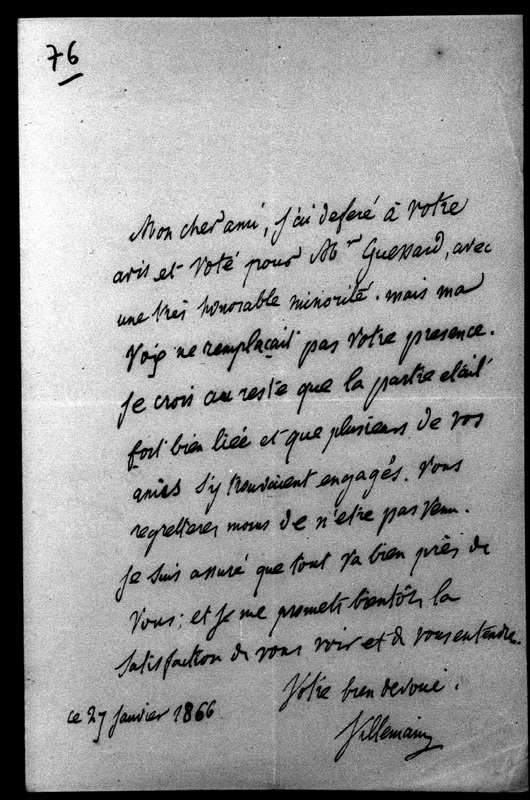 76
Mon cher ami, j'ai deferé à votre
avis et voté pour Mr Guessard, avec
une très honorable minorité. mais ma
voix ne remplaçait pas votre presence.
Je crois au reste que la partie etait
fort bien liée et que plusieurs de vos
amis s'y trouvaient engagés. Vous
regretterez moins de n'etre pas venu.
Je suis assuré que tout va bien près de
vous; et je me promets bientôt la
satisfaction de vous voir et de vous entendre.
Votre bien devoué.
ce 27 janvier 1866
Villemain